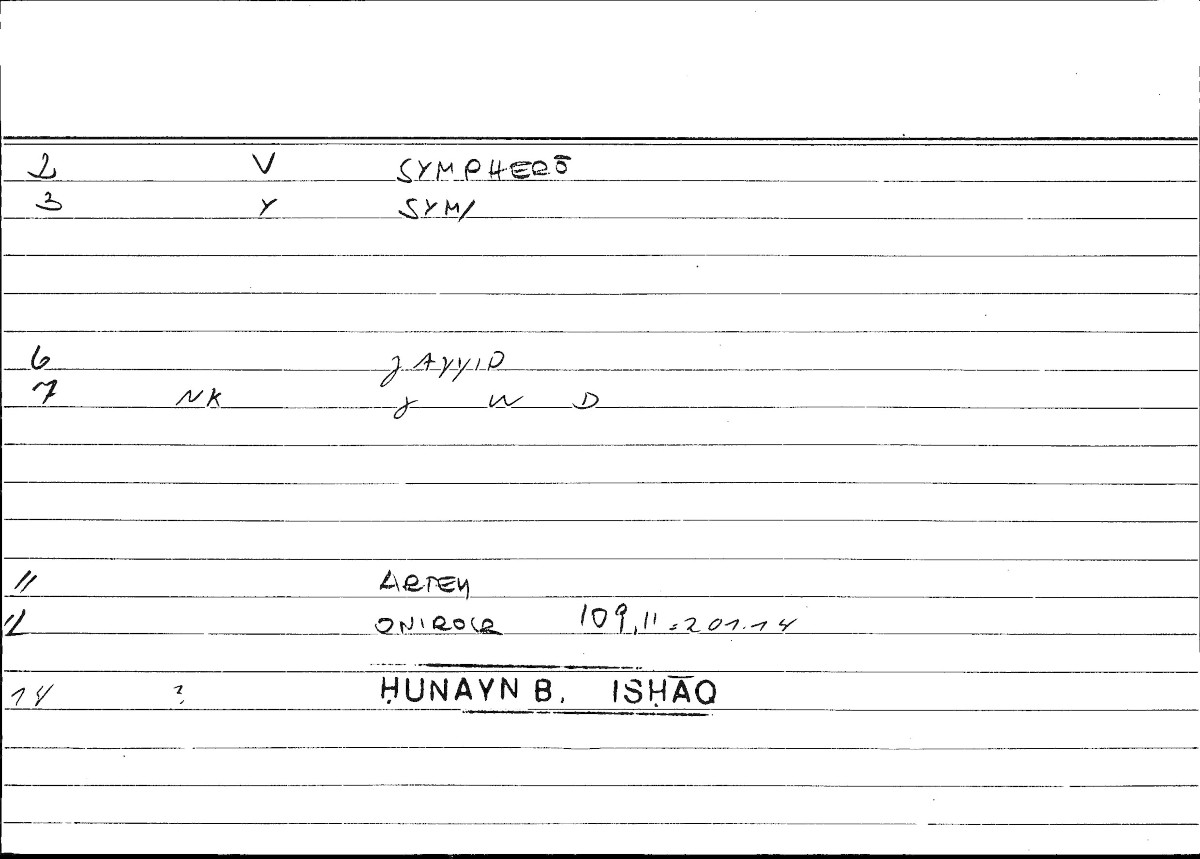 2 V SYMPHERŌ
3 Y SYM/
6 JAYYID
7 NK J W D
11 ARTEM
12 ONIROCR 109,11=201.14
14 ? ḤUNAYN B. ISḤĀQ